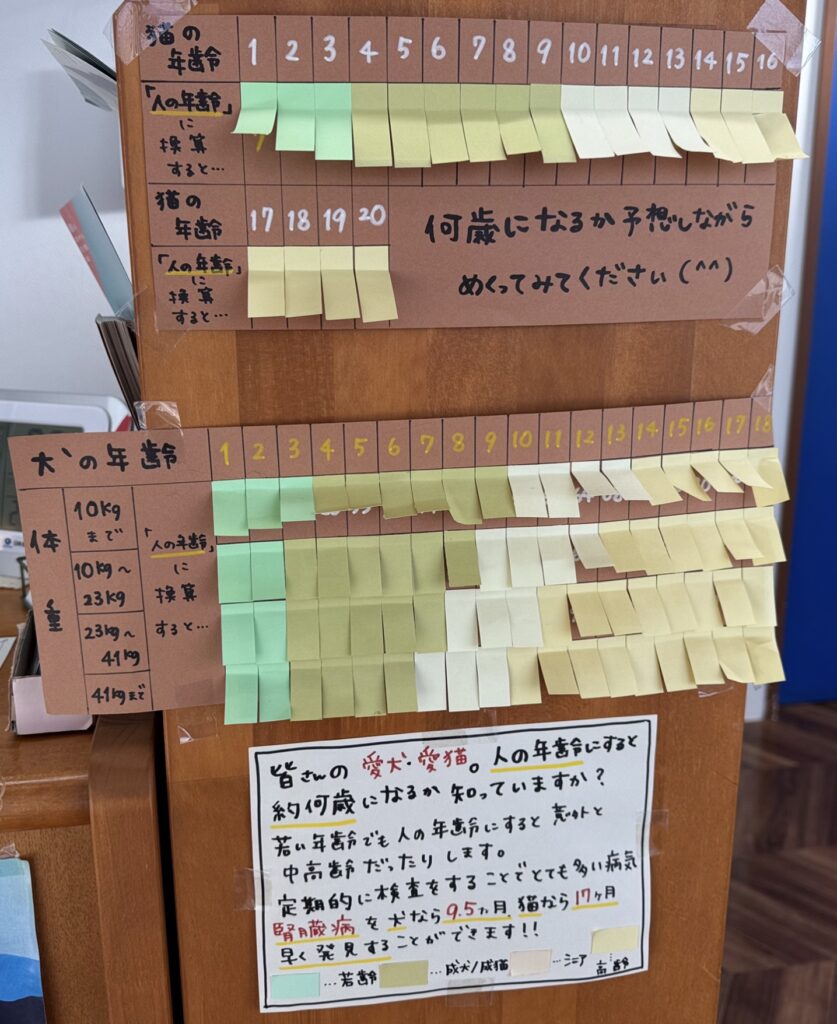 猫の年齢 1 2 3 4 5 6 7 8 9 10 11 12 13 14 15 16
「人の年齢」に換算すると…
猫の年齢 17 18 19 20
「人の年齢」に換算すると…
何歳になるか予想しながら
めくってみてください(^^)
犬の年齢 1 2 3 4 5 6 7 8 9 10 11 12 13 14 15 16 17 18
体重
10kgまで
10kg～23kg
23kg～41kg
41kgまで
「人の年齢」に換算すると…
皆さんの愛犬・愛猫。人の年齢にすると
約何歳になるか知っていますか?
若い年齢でも人の年齢にすると意外と
中高齢だったりします。
定期的に検査をすることでとても多い病気
腎臓病を犬なら9.5ヵ月、猫なら17ヶ月
早く発見することができます!!
…若齢 …成犬/成猫 …シニア 高齢